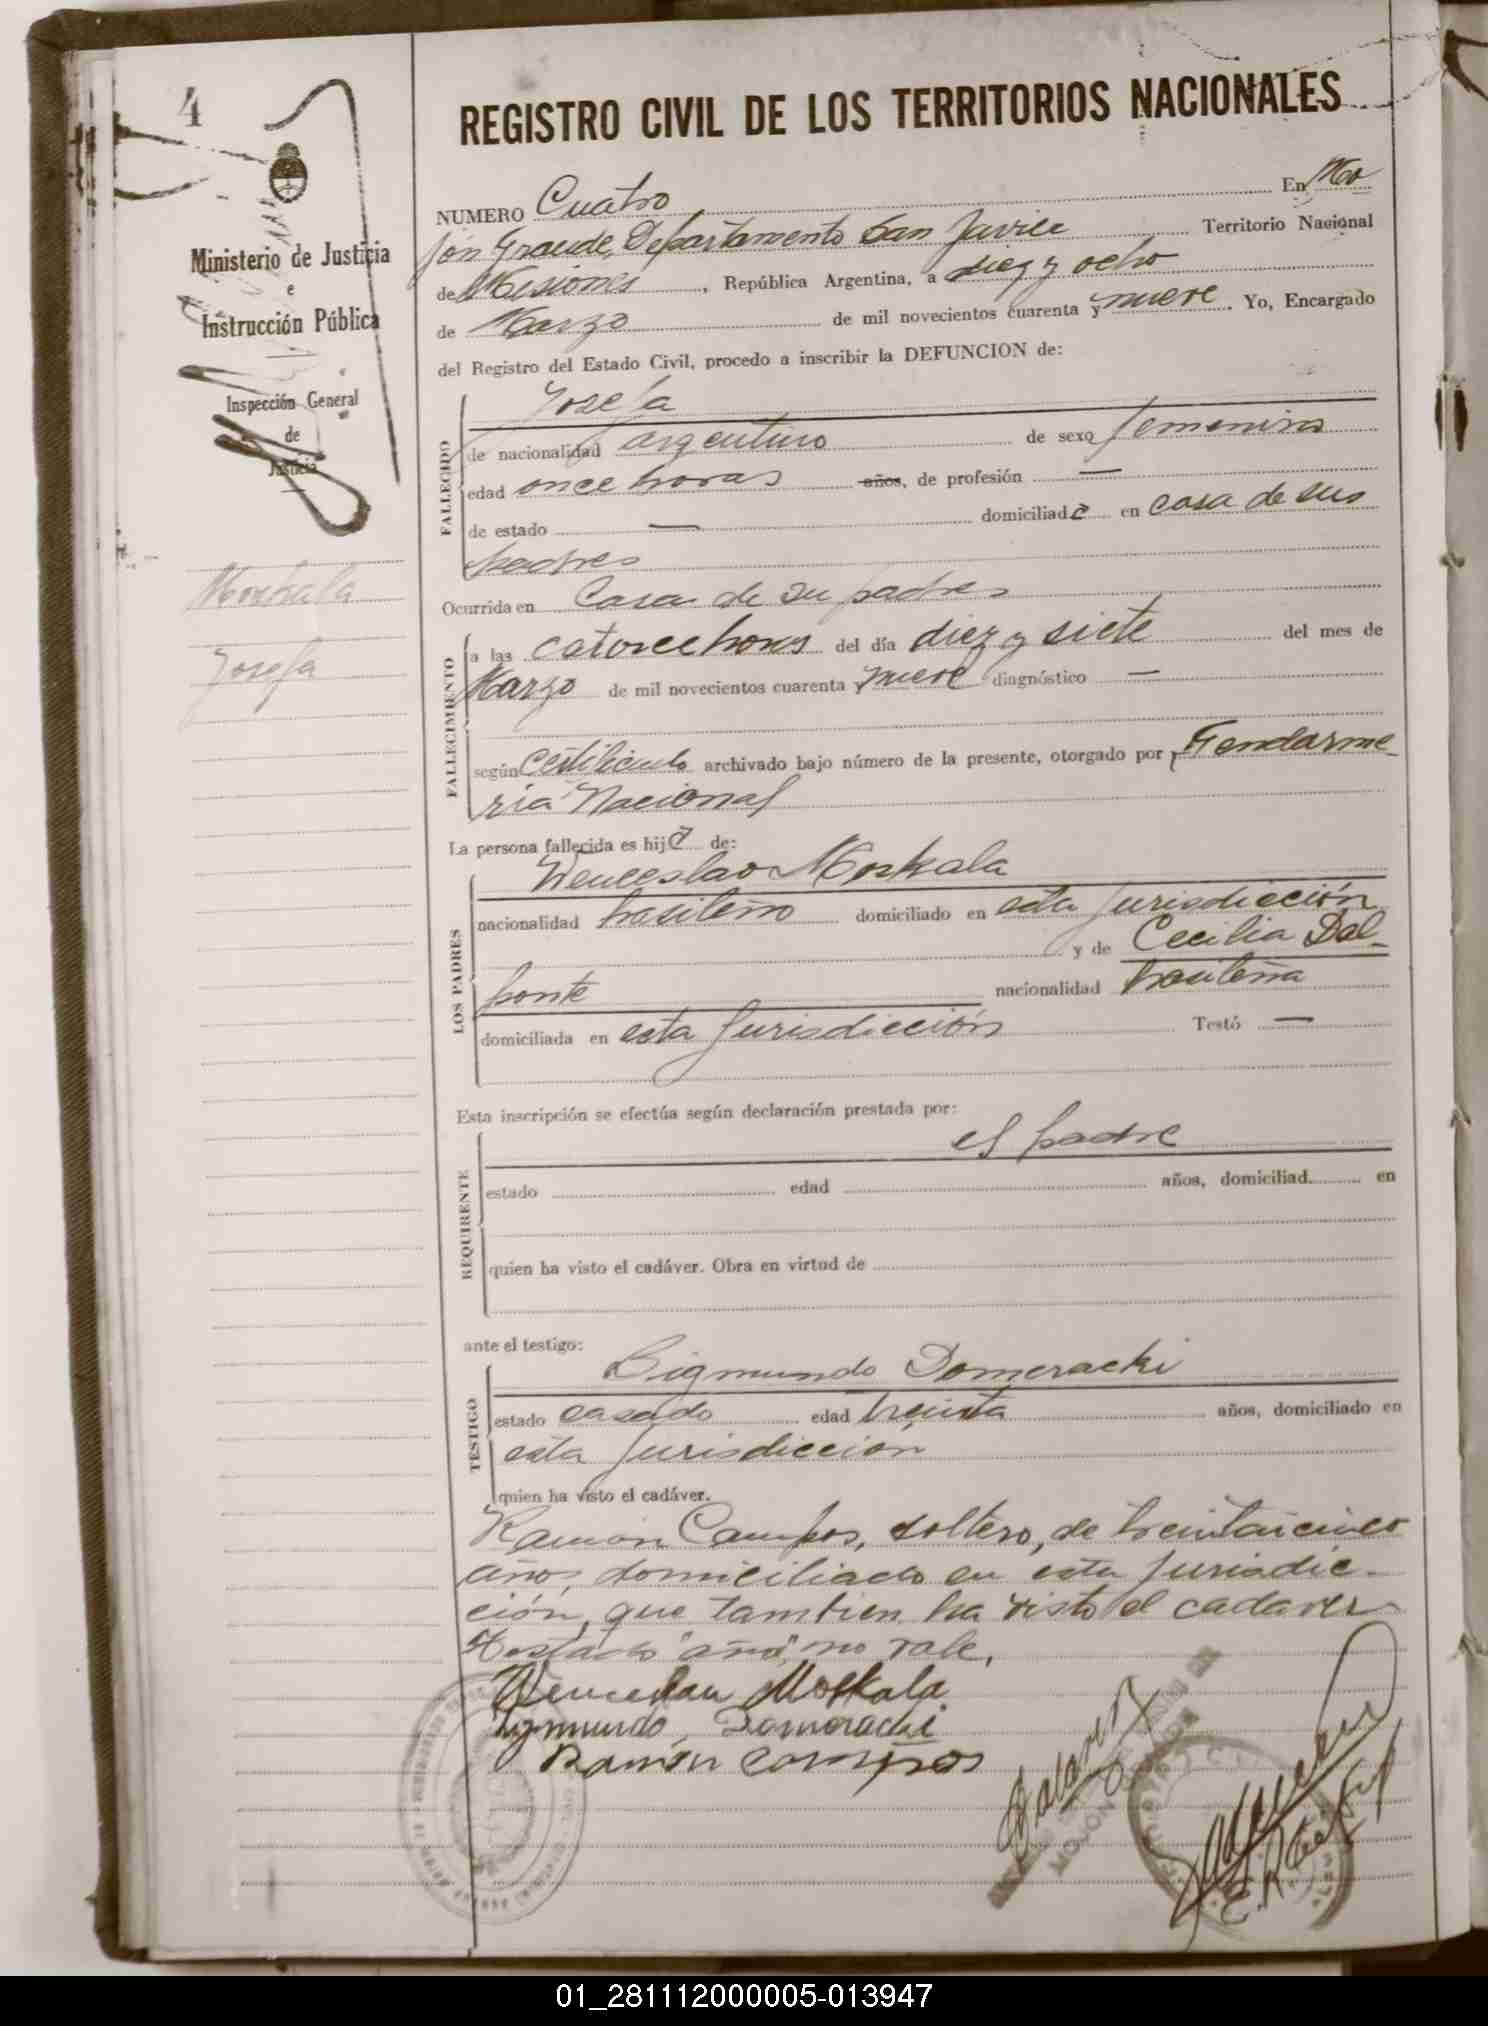 4
REGISTRO CIVIL DE LOS TERRITORIOS NACIONALES
Ministerio de Justicia
e
Instrucción Pública
Inspección General
de
Justicia
Moskala
Josefa
NUMERO Cuatro En Mo
jón Grande, Departamento San Javier Territorio Nacional
de Misiones, República Argentina, a diez y ocho
de Marzo de mil novecientos cuarenta y nueve. Yo, Encargado
del Registro del Estado Civil, procedo a inscribir la DEFUNCION de:
FALLECIDO
Josefa
de nacionalidad argentino de sexo femenino
edad once horas años, de profesión —
de estado — domiciliada en casa de sus
padres
Ocurrida en Casa de su padres
FALLECIMIENTO
a las catorce horas del día diez y siete del mes de
Marzo de mil novecientos cuarenta y nueve diagnóstico —
según Certificado archivado bajo número de la presente, otorgado por Gendarme-
ria Nacional
La persona fallecida es hija de:
LOS PADRES
Wenceslao Moskala
nacionalidad brasileño domiciliado en esta Jurisdicción
y de Cecilia Dal-
ponte nacionalidad brasileña
domiciliada en esta Jurisdicción Testó —
Esta inscripción se efectúa según declaración prestada por:
REQUIRENTE
el padre
estado edad años, domiciliad en
quien ha visto el cadáver. Obra en virtud de
ante el testigo:
TESTIGO
Sigmundo Domeracki
estado casado edad treinta años, domiciliado en
esta Jurisdicción
quien ha visto el cadáver.
Ramón Campos, soltero, de treintaicinco
años, domiciliado en esta Jurisdic-
ción, que tambien ha visto el cadaver
Testado "años" no vale.
Wenceslau Moskala
Zygmundo Domeracki
Ramón Campos
MOJON
01_281112000005-013947